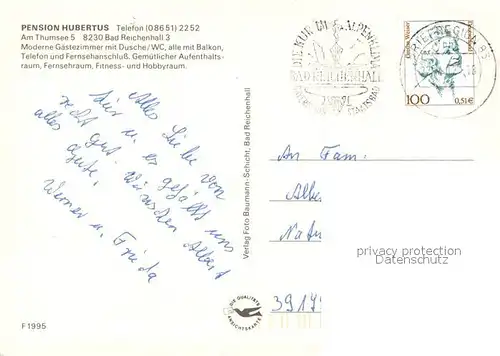 PENSION HUBERTUS Telefon (08651) 2252
Am Thumsee 5 8230 Bad Reichenhall 3
Moderne Gästezimmer mit Dusche/WC, alle mit Balkon,
Telefon und Fernsehanschluß. Gemütlicher Aufenthalts-
raum, Fernsehraum, Fitness- und Hobbyraum.
Alles Liebe von
hier u. es gefällt uns
recht gut. Wünschen Albert
alles gute.
Werner u. Frieda
F 1995
Verlag Foto Baumann-Schicht, Bad Reichenhall
DIE QUALITÄTS
ANSICHTSKARTE
BAD REICHENHALL
100
0,51 €
An Fam.
Albe
Natu
privacy protection
Datenschutz
3917